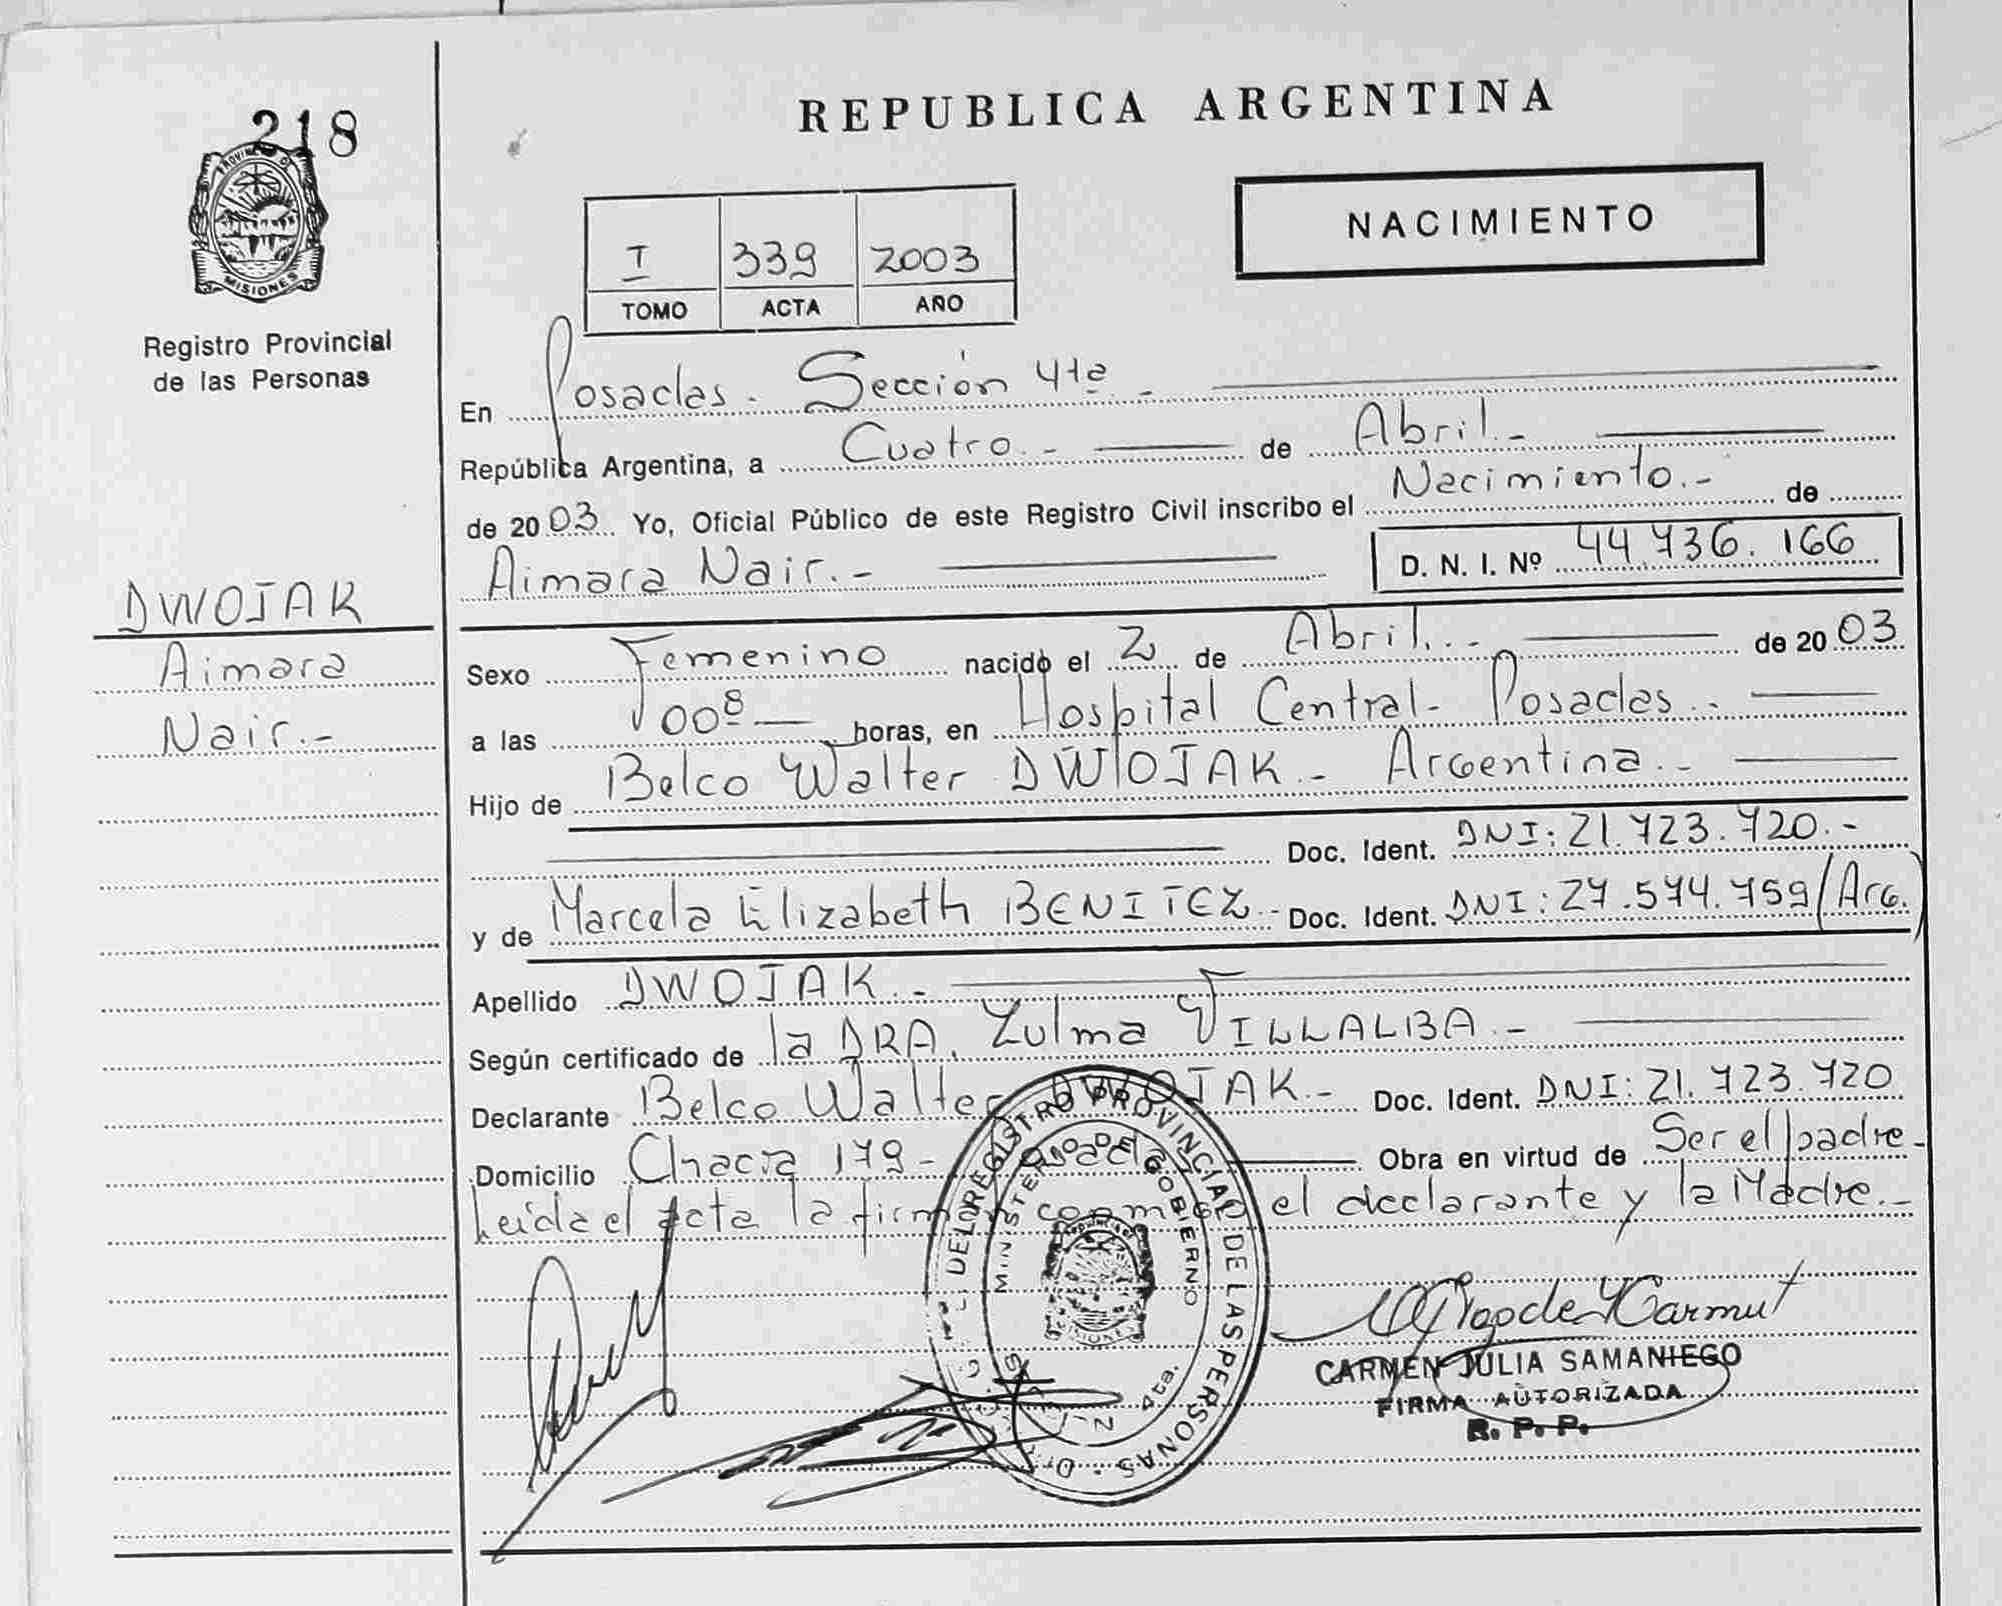 218
PROVINCIA DE
MISIONES
Registro Provincial
de las Personas
DWOJAK
Aimara
Nair.-
REPUBLICA ARGENTINA
NACIMIENTO
I 339 2003
TOMO ACTA AÑO
En Posadas. Sección 4ta.-
República Argentina, a Cuatro.- de Abril.-
de 2003. Yo, Oficial Público de este Registro Civil inscribo el Nacimiento.- de
Aimara Nair.- D. N. I. Nº 44.736.166
Sexo Femenino nacido el 2 de Abril.- de 2003
a las 00⁸ horas, en Hospital Central- Posadas.-
Hijo de Belco Walter DWOJAK.- Argentina.-
Doc. Ident. DNI: 21.723.720.-
y de Marcela Elizabeth BENITEZ.- Doc. Ident. DNI: 27.574.759/Arg.
Apellido DWOJAK.-
Según certificado de la DRA. Zulma VILLALBA.-
Declarante Belco Walter DWOJAK.- Doc. Ident. DNI: 21.723.720
Domicilio Chacra 179- Posadas Obra en virtud de Ser el padre-
Leida el acta la firman conmigo el declarante y la Madre.-
DEL REGISTRO PROVINCIAL DE LAS PERSONAS
MINISTERIO DE GOBIERNO
4ta.
CARMEN JULIA SAMANIEGO
FIRMA AUTORIZADA
R. P. P.